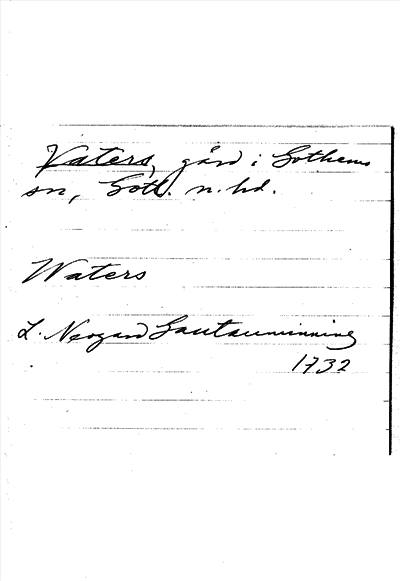 Vaters, gård i Gothems
sn, Gotl. n. hd.
Waters
L. Neogard Gautauminning
1732